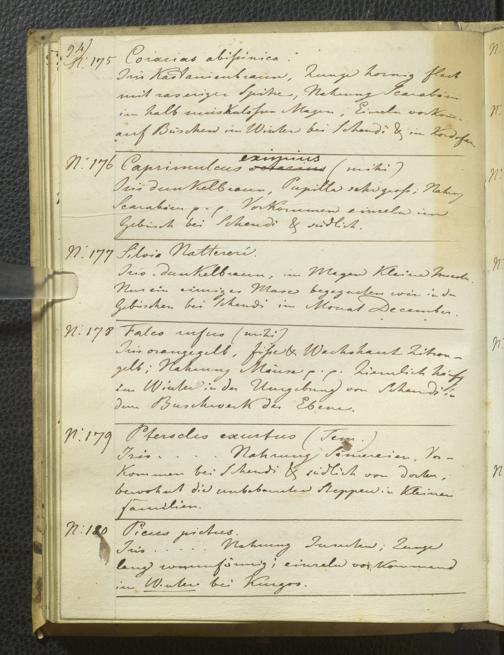 94/
N: 175 Coracias abissinica.
Iris Kastanienbraun, Zunge hornig flach
mit faseriger Spitze, Nahrung Scarabäen
im halb muskulosen Magen, Einzeln vorkom
auf Büschen im Winter bei Schendi & in Kordofan
N: 176 Caprimulcus eximius (mihi)
Iris dunkelbraun, Pupilla sehr groß; Nahrg
Scarabäen p. p. Vorkommen einzeln im
Gebüsch bei Schendi & südlich.
N: 177 Silvia Nattereri.
Iris dunkelbraun, im Magen Kleine Insecte.
Nur ein einziges Mal begegneten wir in den
Gebüschen bei Schendi im Monat December.
N: 178 Falco rufus (mihi)
Iris orangegelb, füße & Wachshaut Zitron-
gelb; Nahrung Mäuse p. p. Ziemlich häufig
im Winter in der Umgebung von Schendi in
dem Buschwerk der Ebene.
N: 179 Pterocles exustus (Tem.)
Iris . . . . Nahrung Sämereien, Vor-
kommen bei Schendi & südlich von dorten,
bewohnt die unbebauten Steppen in kleinen
familien.
N: 180 Picus pictus.
Iris . . . . . Nahrung Insecten; Zunge
lang wurmförmig; einzeln vorkommend
im Winter bei Kurgos.